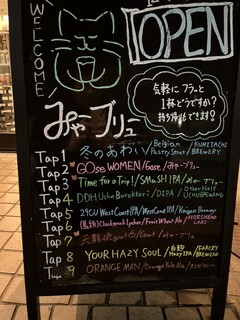 WELCOME
OPEN
みやーブリュー
気軽に フラッと
1杯どうですか?
持ち帰りもできます?
Tap 1 冬のあわい/Belgian Pastry Stout/KUNITACHI BREWERY
Tap 2 GOse WOMEN/Gose/みやーブリュー
Tap 3 Time for a Trip!/SMaSH IPA/みやーブリュー
Tap 4 DDH Uchu Barokkori/DIPA/Other Half UCHU BREWING
Tap 5 29CU West Coast IPA/West Coast IPA/Kangan Brewing
Tap 6 Clockwork Lychee/Fruit Wheat Ale/HORSEHEAD LABS
Tap 7
Tap 8 YOUR HAZY SOUL/Hazy IPA/BREWING
Tap 9 ORANGE MAN/Orange Pale Ale